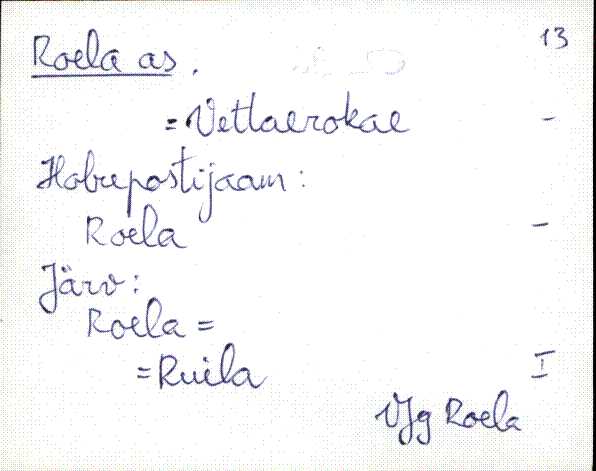 13
Roela as.
= Vetlaerokae –
Hobupostijaam:
Roela –
Järv:
Roela =
= Ruila I
VJg Roela